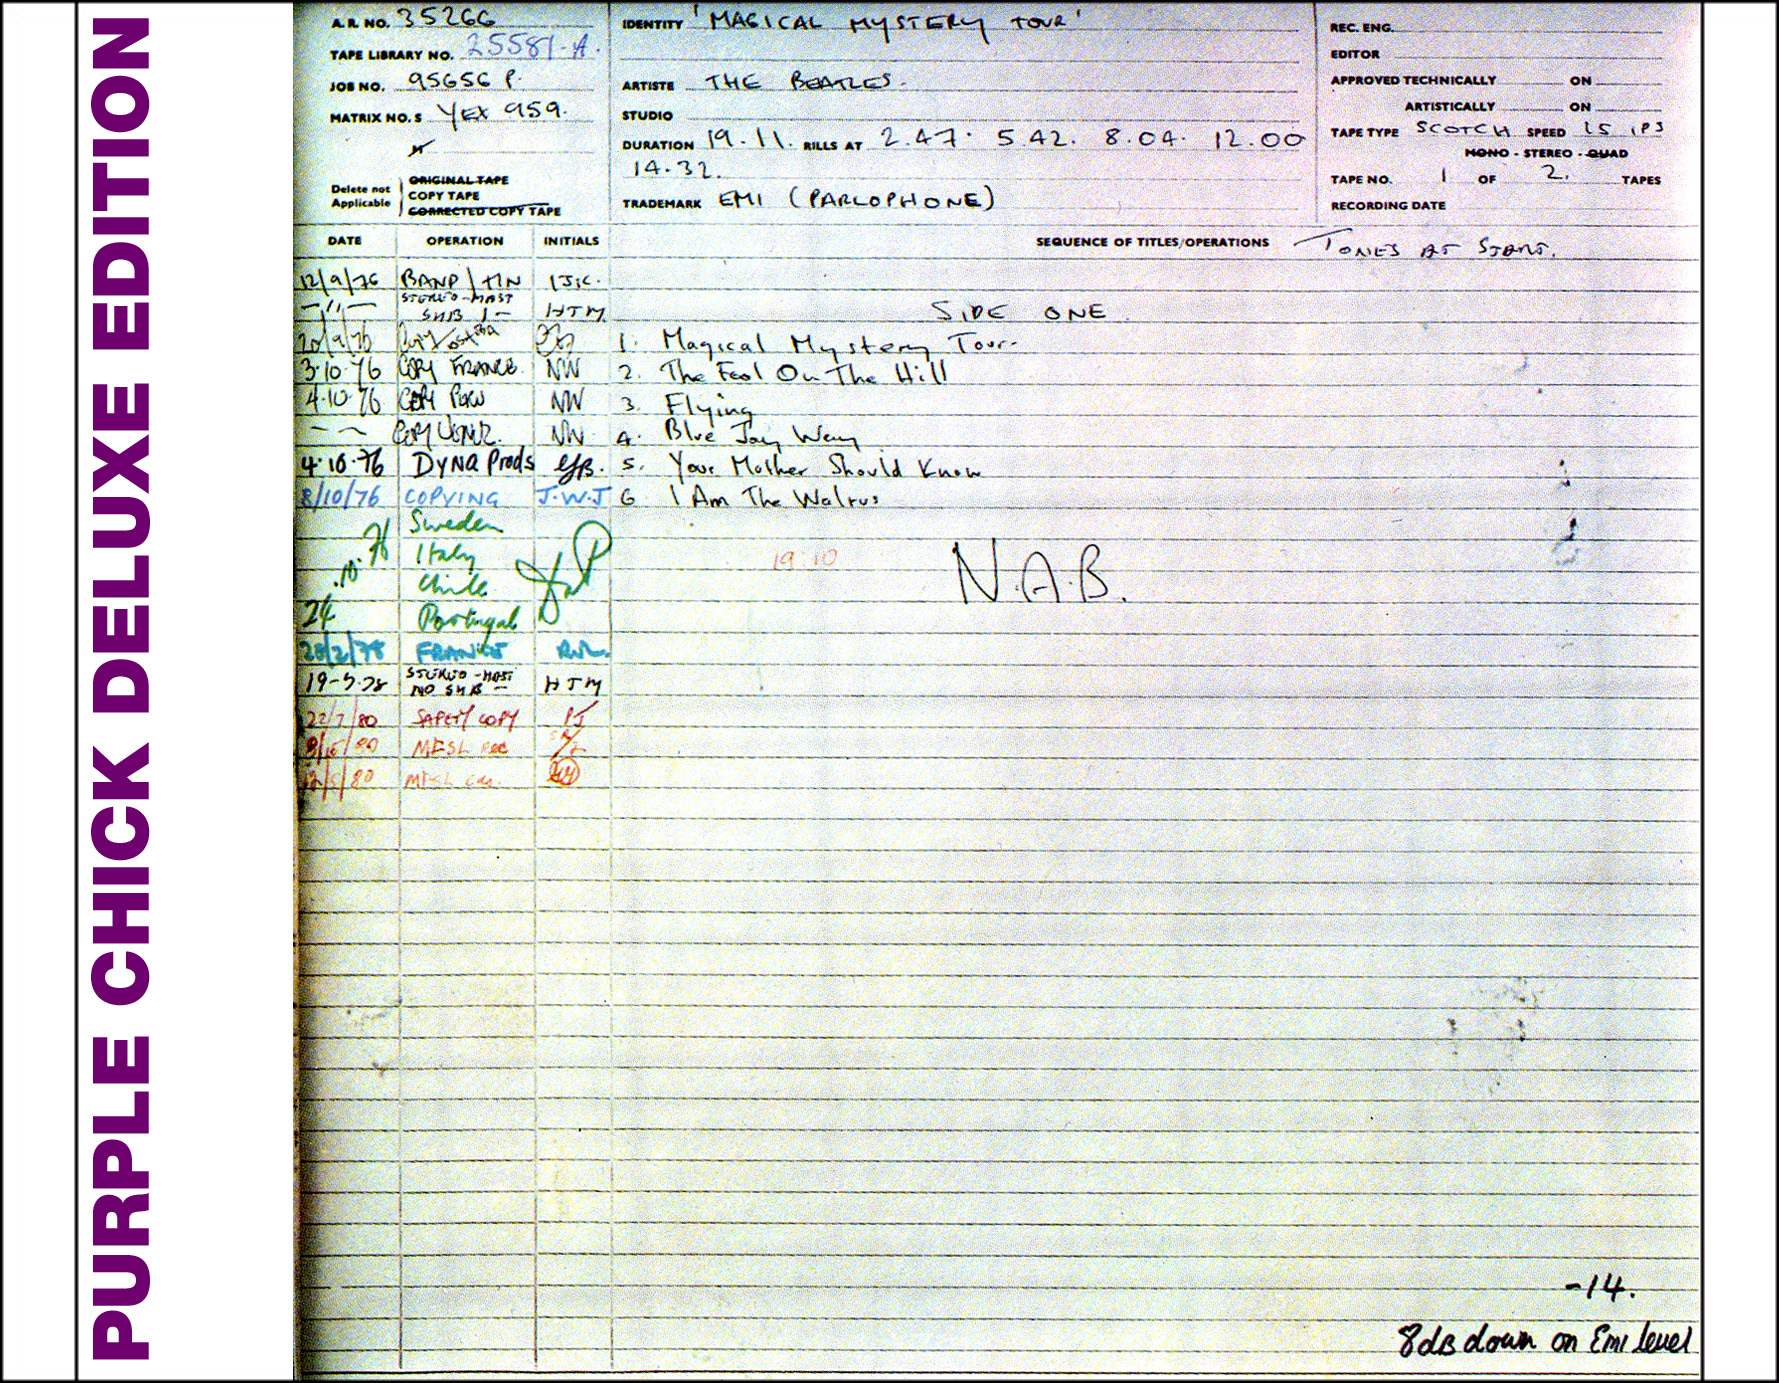 PURPLE CHICK DELUXE EDITION
A.R. NO. 35266
TAPE LIBRARY NO. 25581-A.
JOB NO. 95656 P.
MATRIX NO.S YEX 959.
Delete not Applicable
ORIGINAL TAPE
COPY TAPE
CORRECTED COPY TAPE
IDENTITY 'MAGICAL MYSTERY TOUR'
ARTISTE THE BEATLES.
STUDIO
DURATION 19.11. RILLS AT 2.47. 5.42. 8.04. 12.00
14.32.
TRADEMARK EMI (PARLOPHONE)
REC. ENG.
EDITOR
APPROVED TECHNICALLY ON
ARTISTICALLY ON
TAPE TYPE SCOTCH SPEED 15 IPS
MONO - STEREO - QUAD
TAPE NO. 1 OF 2. TAPES
RECORDING DATE
DATE OPERATION INITIALS SEQUENCE OF TITLES/OPERATIONS TONES AT START.
12/9/76
STEREO-MAST
HTM
SIDE ONE
20/9/76 Copy
1. Magical Mystery Tour
3.10.76 COPY FRANCE. NW 2. The Fool On The Hill
4.10.76 COPY NW 3. Flying
COPY NW 4. Blue Jay Way
4.10.76 DYNA Prods 5. Your Mother Should Know
8/10/76 COPYING J.W.J 6 I Am The Walrus
Sweden
.10.76 Italy 19 10 N.A.B.
Chile
24 Portingal
28/2/78 FRANCE
19-5-78 STEREO-MAST
NO SUB - HTM
22/7/80 SAFETY COPY PJ
/80 MFSL
12/5/80 MFSL
-14.
8dB down on Emi level